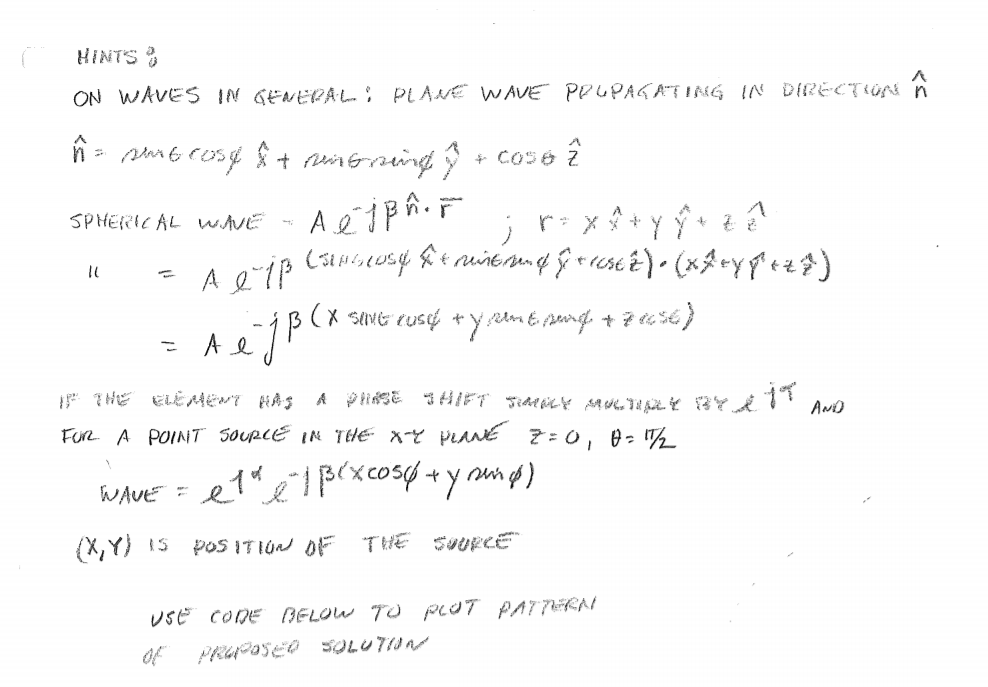 HINTS:
ON WAVES IN GENERAL: PLANE WAVE PROPAGATING IN DIRECTION n̂
n̂ = sinθ cosφ x̂ + sinθ sinφ ŷ + cosθ ẑ
SPHERICAL WAVE - A e^{-jβ n̂·r̄} ; r = x x̂ + y ŷ + z ẑ
" = A e^{-jβ (sinθ cosφ x̂ + sinθ sinφ ŷ + cosθ ẑ)·(x x̂ + y ŷ + z ẑ)}
= A e^{-jβ (x sinθ cosφ + y sinθ sinφ + z cosθ)}
IF THE ELEMENT HAS A PHASE SHIFT SIMPLY MULTIPLY BY AND
FOR A POINT SOURCE IN THE X-Y PLANE Z=0, θ=π/2
WAVE = e^{jα} e^{-jβ(x cosφ + y sinφ)}
(X,Y) IS POSITION OF THE SOURCE
USE CODE BELOW TO PLOT PATTERN
OF PROPOSED SOLUTION